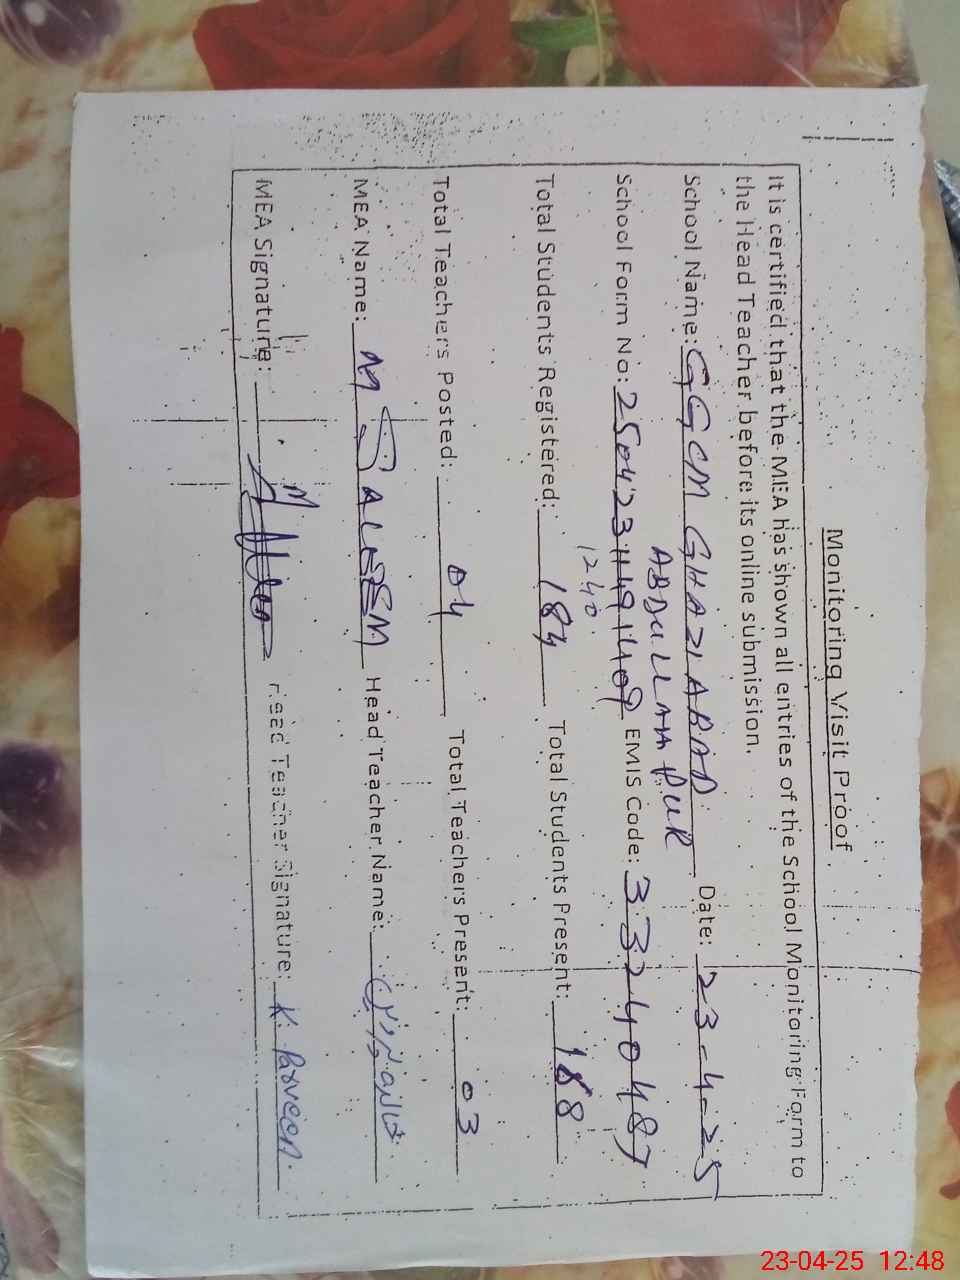 Monitoring Visit Proof
It is certified that the MEA has shown all entries of the School Monitoring Form to
the Head Teacher before its online submission.
School Name: GGCM GHAZIABAD Date: 23-4-25
ABDULLAH PUR
School Form No: EMIS Code: 33240487
1240
Total Students Registered: 184 Total Students Present: 188
Total Teachers Posted: 04 Total Teachers Present: 03
MEA Name: M SALEEM Head Teacher Name: خالدہ پروین
MEA Signature: Head Teacher Signature: K. Parveen.
23-04-25 12:48